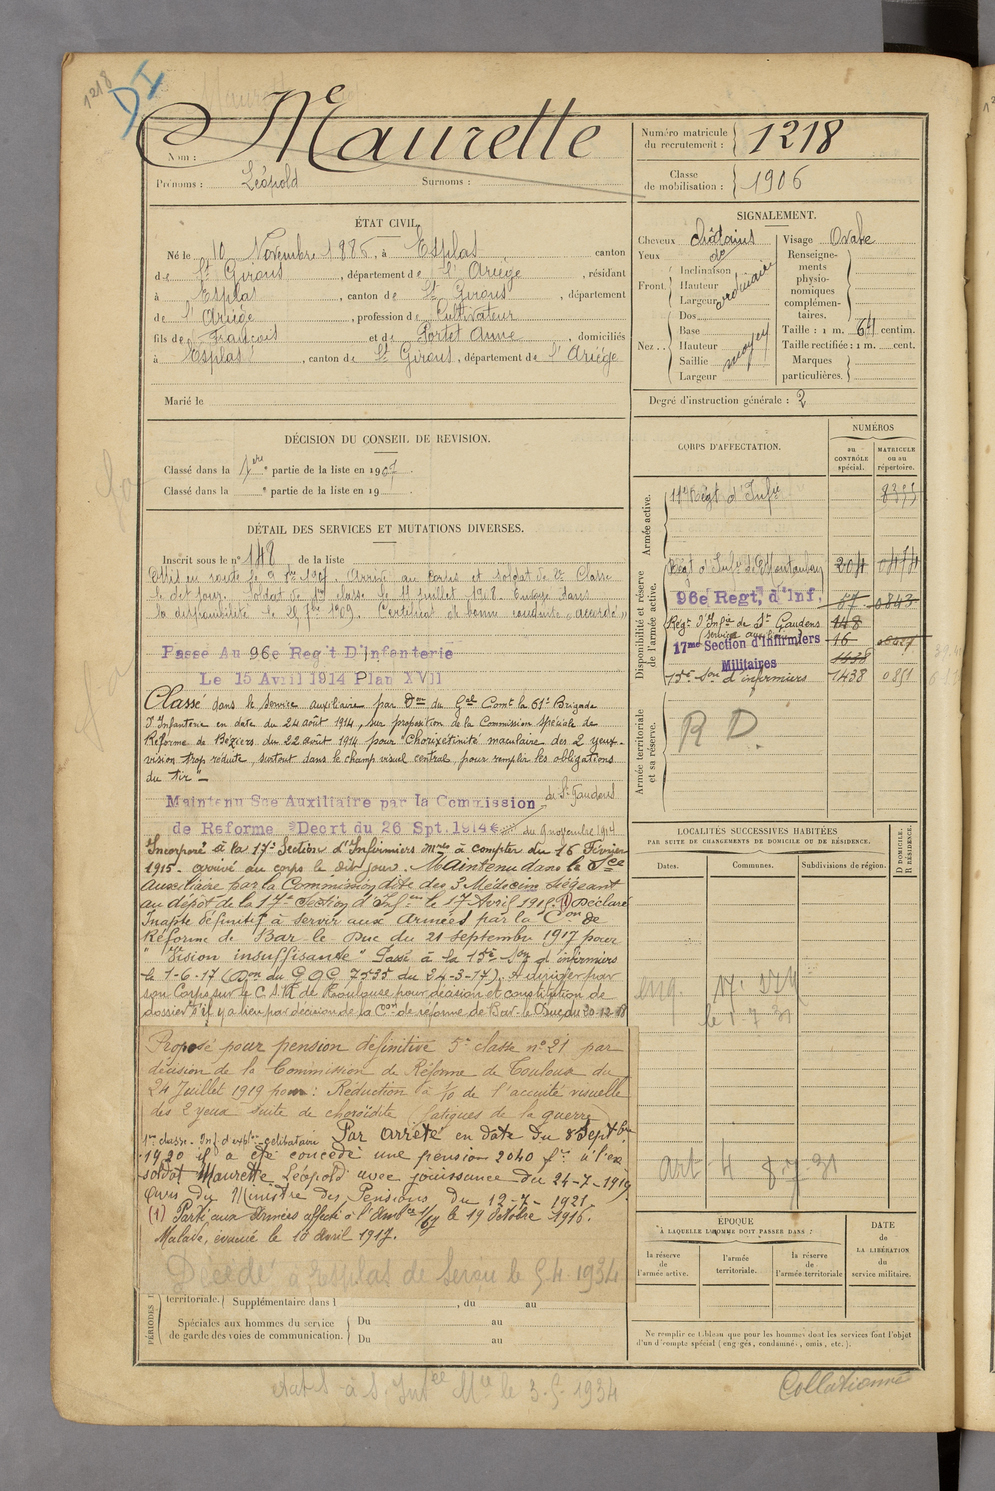 1218
DI
Nom : Maurette
Prénoms : Léopold Surnoms :
Numéro matricule du recrutement : 1218
Classe de mobilisation : 1906
ÉTAT CIVIL.
Né le 10 Novembre 1886, à Esplas canton
de St Girons, département de l'Ariège, résidant
à Esplas, canton de St Girons, département
de l'Ariège, profession de Cultivateur
fils de François et de Portet Anne, domiciliés
à Esplas, canton de St Girons, département de l'Ariége
Marié le
SIGNALEMENT.
Cheveux châtains
Yeux do
Front : Inclinaison Hauteur Largeur ordinaire
Nez : Dos Base Hauteur Saillie Largeur moyen
Visage Ovale
Renseignements physionomiques complémentaires.
Taille : 1 m. 64 centim.
Taille rectifiée : 1 m. cent.
Marques particulières.
Degré d'instruction générale : 2
DÉCISION DU CONSEIL DE REVISION.
Classé dans la 1ere partie de la liste en 1907.
Classé dans la e partie de la liste en 19 .
DÉTAIL DES SERVICES ET MUTATIONS DIVERSES.
Inscrit sous le n° 148 de la liste
en route le 9 1907. Arrivé au corps et soldat de 2e Classe
le dit jour. Soldat de 1re classe le 11 juillet 1908. Envoyé dans
la disponibilité le 25 7bre 1909. Certificat de bonne conduite "accordé"
Passé Au 96e Reg't D'Infanterie
Le 15 Avril 1914 Plan XVII
Classé dans le service auxiliaire par Don du Gal Comt la 61e Brigade
d'Infanterie en date du 24 août 1914, sur proposition de la Commission spéciale de
Réforme de Béziers du 22 août 1914 pour "Chorixétinité maculaire des 2 yeux.
vision trop réduite, surtout dans le champ visuel central, pour remplir les obligations
du tir"
Maintenu Sce Auxiliaire par la Commission de St Gaudens
de Reforme Decrt du 26 Spt. 1914 du 9 novembre 1914
Incorporé à la 17e Section d'Infirmiers mres à compter du 16 Février
1915. arrivé au corps le dit jour. Maintenu dans le Sce
Auxiliaire par la Commission dite des 3 Médecins siégeant
au dépôt de la 17e Section d'Infers le 17 Avril 1915. (1) Déclaré
Inapte définitif à servir aux Armées par la Con de
Réforme de Bar le Duc du 21 septembre 1917 pour
"Vision insuffisante" Passé à la 15e Son d'infirmiers
le 1-6-17 (Don du G.Q.G. 7535 du 24-3-17). A diriger par
son Corps sur le C.S.R de Toulouse pour décision et constitution de
dossier s'il y a lieu par décision de la Con de réforme de Bar-le-Duc du 30-12-18
Proposé pour pension définitive 5e classe n° 21 par
décision de la Commission de Réforme de Toulouse du
24 Juillet 1919 pour : Réduction à 1/10 de l'acuité visuelle
des 2 yeux suite de choroïdite (fatigues de la guerre)
Par arrêté en date du 8 Septbre
1920 il a été concédé une pension 2040 frs à l'ex
soldat Maurette Léopold avec jouissance du 24-7-1919
Avis du Ministre des Pensions du 12-7-1921
(1) Parti aux Armées affecté à l'Ambce 1/64 le 19 Octobre 1916.
Malade, évacué le 10 avril 1917.
Décédé à Esplas de Serou le 5.4.1934
territoriale. Supplémentaire dans l , du au
Spéciales aux hommes du service de garde des voies de communication.
Du au
Du au
CORPS D'AFFECTATION.
NUMÉROS
au CONTRÔLE spécial.
MATRICULE ou au répertoire.
Armée active.
Régt d'Infie
Disponibilité et réserve de l'armée active.
Régt d'Infie de Montauban 204 0474
96e Regt, d'Inf. 67 0843
Régt d'Infie de St Gaudens 148
service auxiliaire
17me Section d'Infirmiers Militaires 16
1438
15e Son d'infirmiers 1438 0851
Armée territoriale et sa réserve.
R D.
LOCALITÉS SUCCESSIVES HABITÉES
PAR SUITE DE CHANGEMENTS DE DOMICILE OU DE RÉSIDENCE.
Dates. Communes. Subdivisions de région. D DOMICILE. R RÉSIDENCE.
Art 4 8-7-31
ÉPOQUE
À LAQUELLE L'HOMME DOIT PASSER DANS :
la réserve de l'armée active.
l'armée territoriale.
la réserve de l'armée territoriale
DATE de LA LIBÉRATION du service militaire.
Ne remplir ce tableau que pour les hommes dont les services font l'objet
d'un décompte spécial (engagés, condamnés, omis, etc.).
Collationné